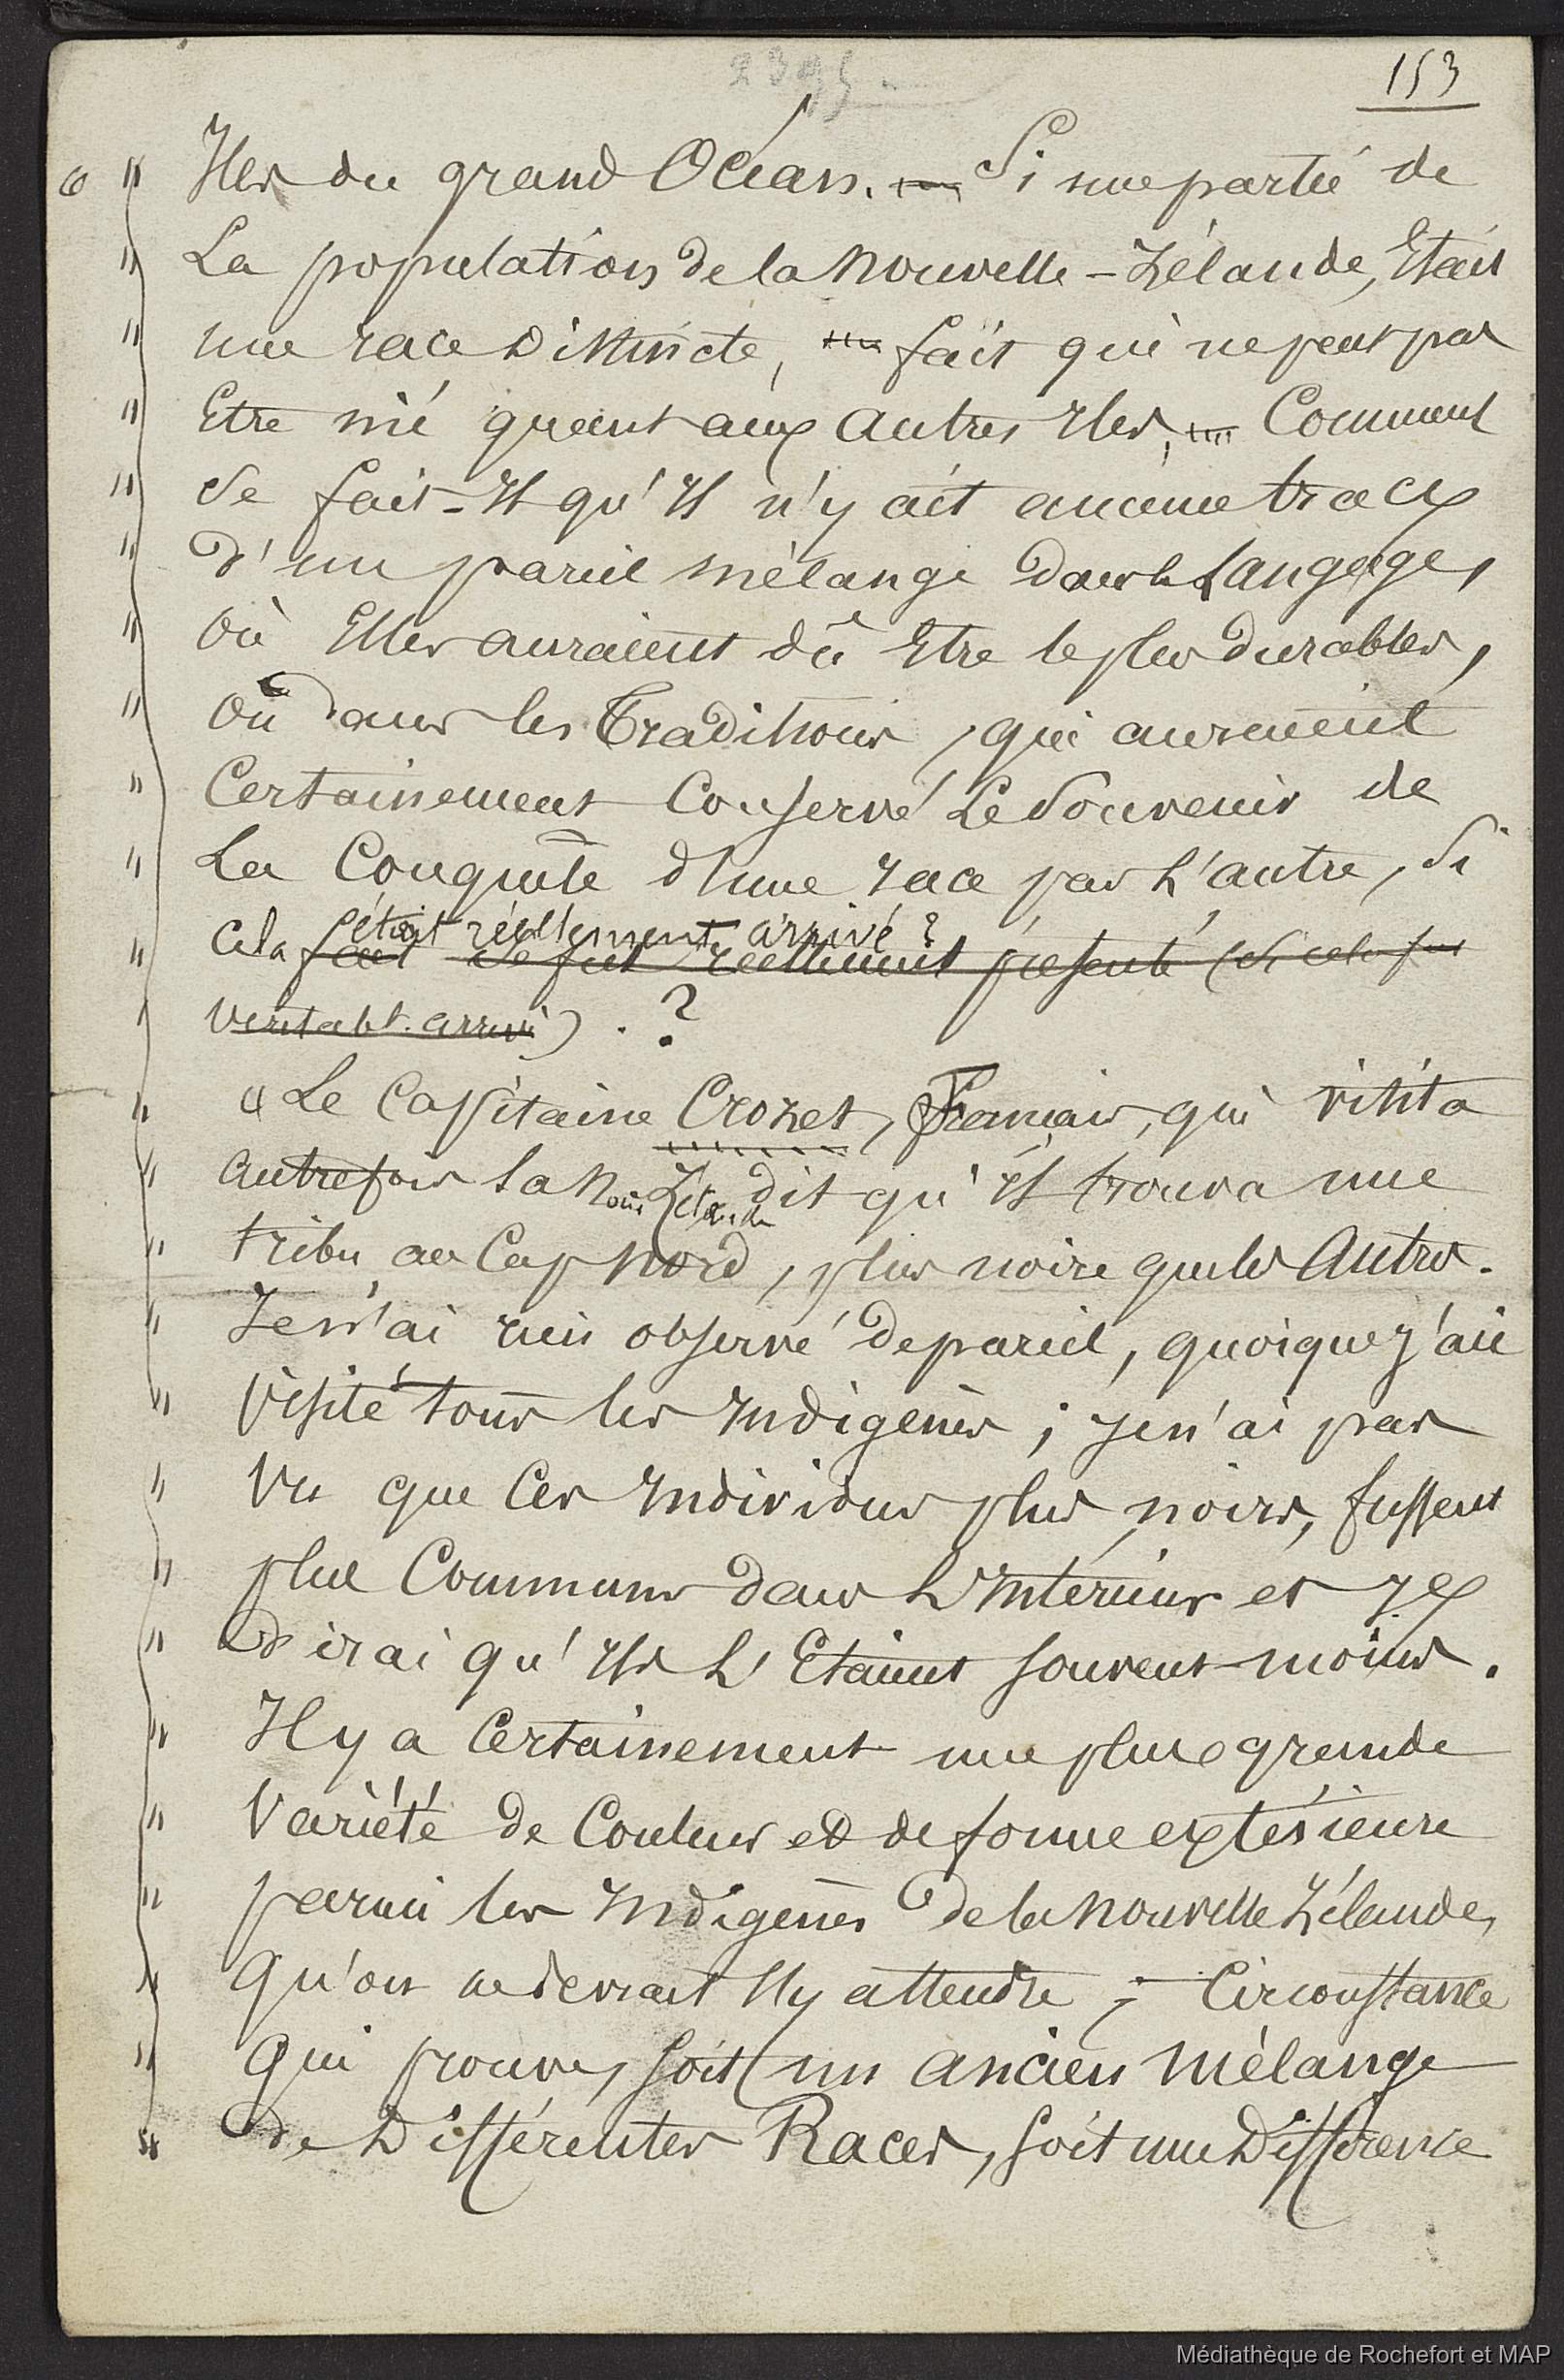 153
« " Iles du grand Océan. — Si une partie de
" La population de la Nouvelle-Zélande, Etait
" une race Distincte, fait qui ne peut pas
" Etre nié quant aux autres Iles, Comment
" se fait-Il qu'Il n'y ait aucune trace
" d'un pareil mélange dans le Langage,
" où Elles auraient dû Etre le plus durables,
" ou dans les Traditions, qui auraient
" Certainement Conservé Le Souvenir de
" La Conquête d'une race par L'autre, si
était réellement arrivé ?
" cela fait se fut réellement présenté (si cela fut
veritabt. arrivé) . ?
" « Le Capitaine Crozet, Français, qui visita
" autrefois la Nou. Zélande dit qu'Il trouva une
" tribu au Cap Nord, plus noire que les Autres.
" Je n'ai rien observé de pareil, quoique j'aie
" visité tous les Indigènes ; je n'ai pas
" Vu que Ces Individus plus noirs, fussent
" plus Communs dans L'Intérieur et je
" dirai qu'Ils L'Etaient souvent moins.
" Il y a Certainement une plus grande
" Variété de Couleur et de forme extérieure
" parmi les Indigènes de la Nouvelle Zélande,
" qu'on ne devrait s'y attendre ; Circonstance
" qui prouve, soit un ancien mélange
" de Différentes Races, soit une Différence
Médiathèque de Rochefort et MAP